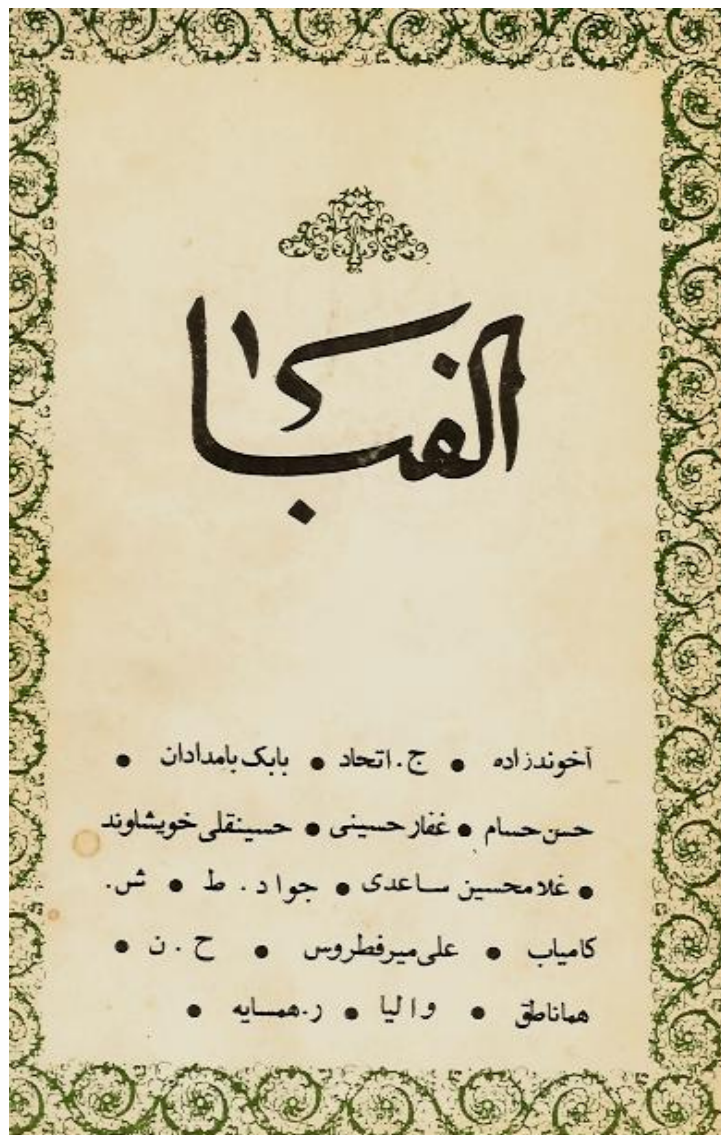 الفبا
آخوندزاده ● ج. اتحاد ● بابک بامدادان ●
حسن حسام ● غفار حسینی ● حسینقلی خویشاوند
● غلامحسین ساعدی ● جواد. ط ● ش.
کامیاب ● علی میرفطروس ● ح. ن ●
هما ناطق ● والیا ● ر. همسایه ●